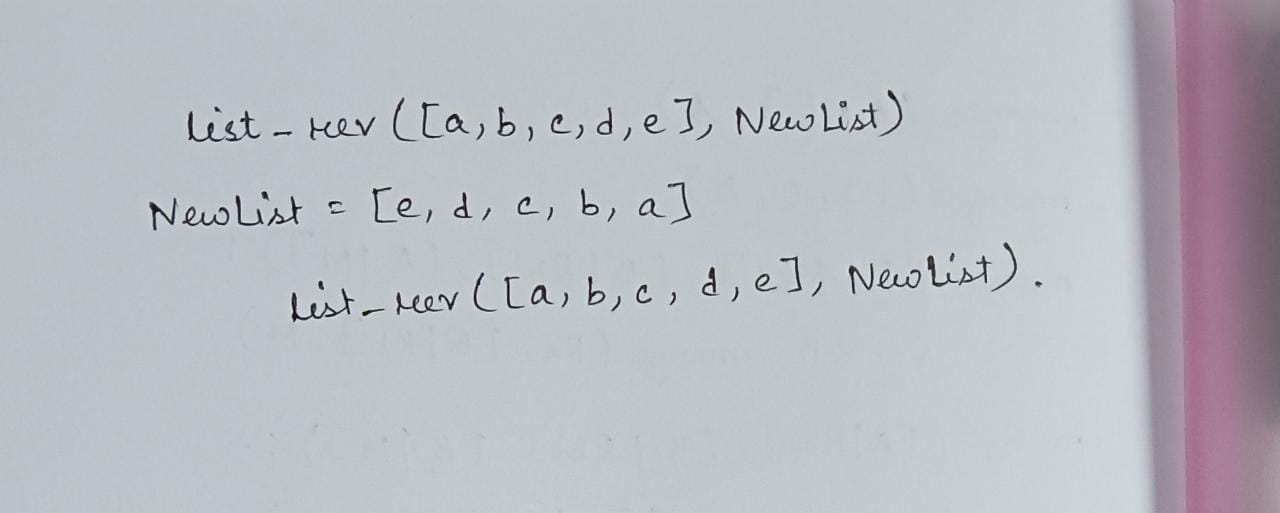 list-rev([a,b,c,d,e], NewList)
NewList = [e, d, c, b, a]
list-rev([a,b,c,d,e], Newlist).